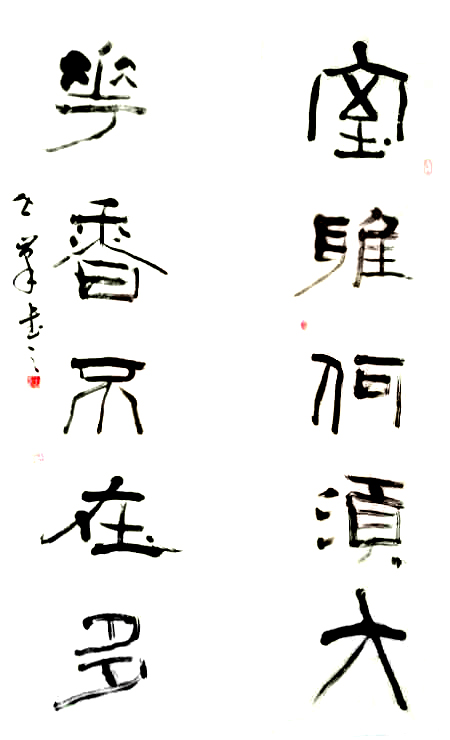 室雅何須大
華香不在多